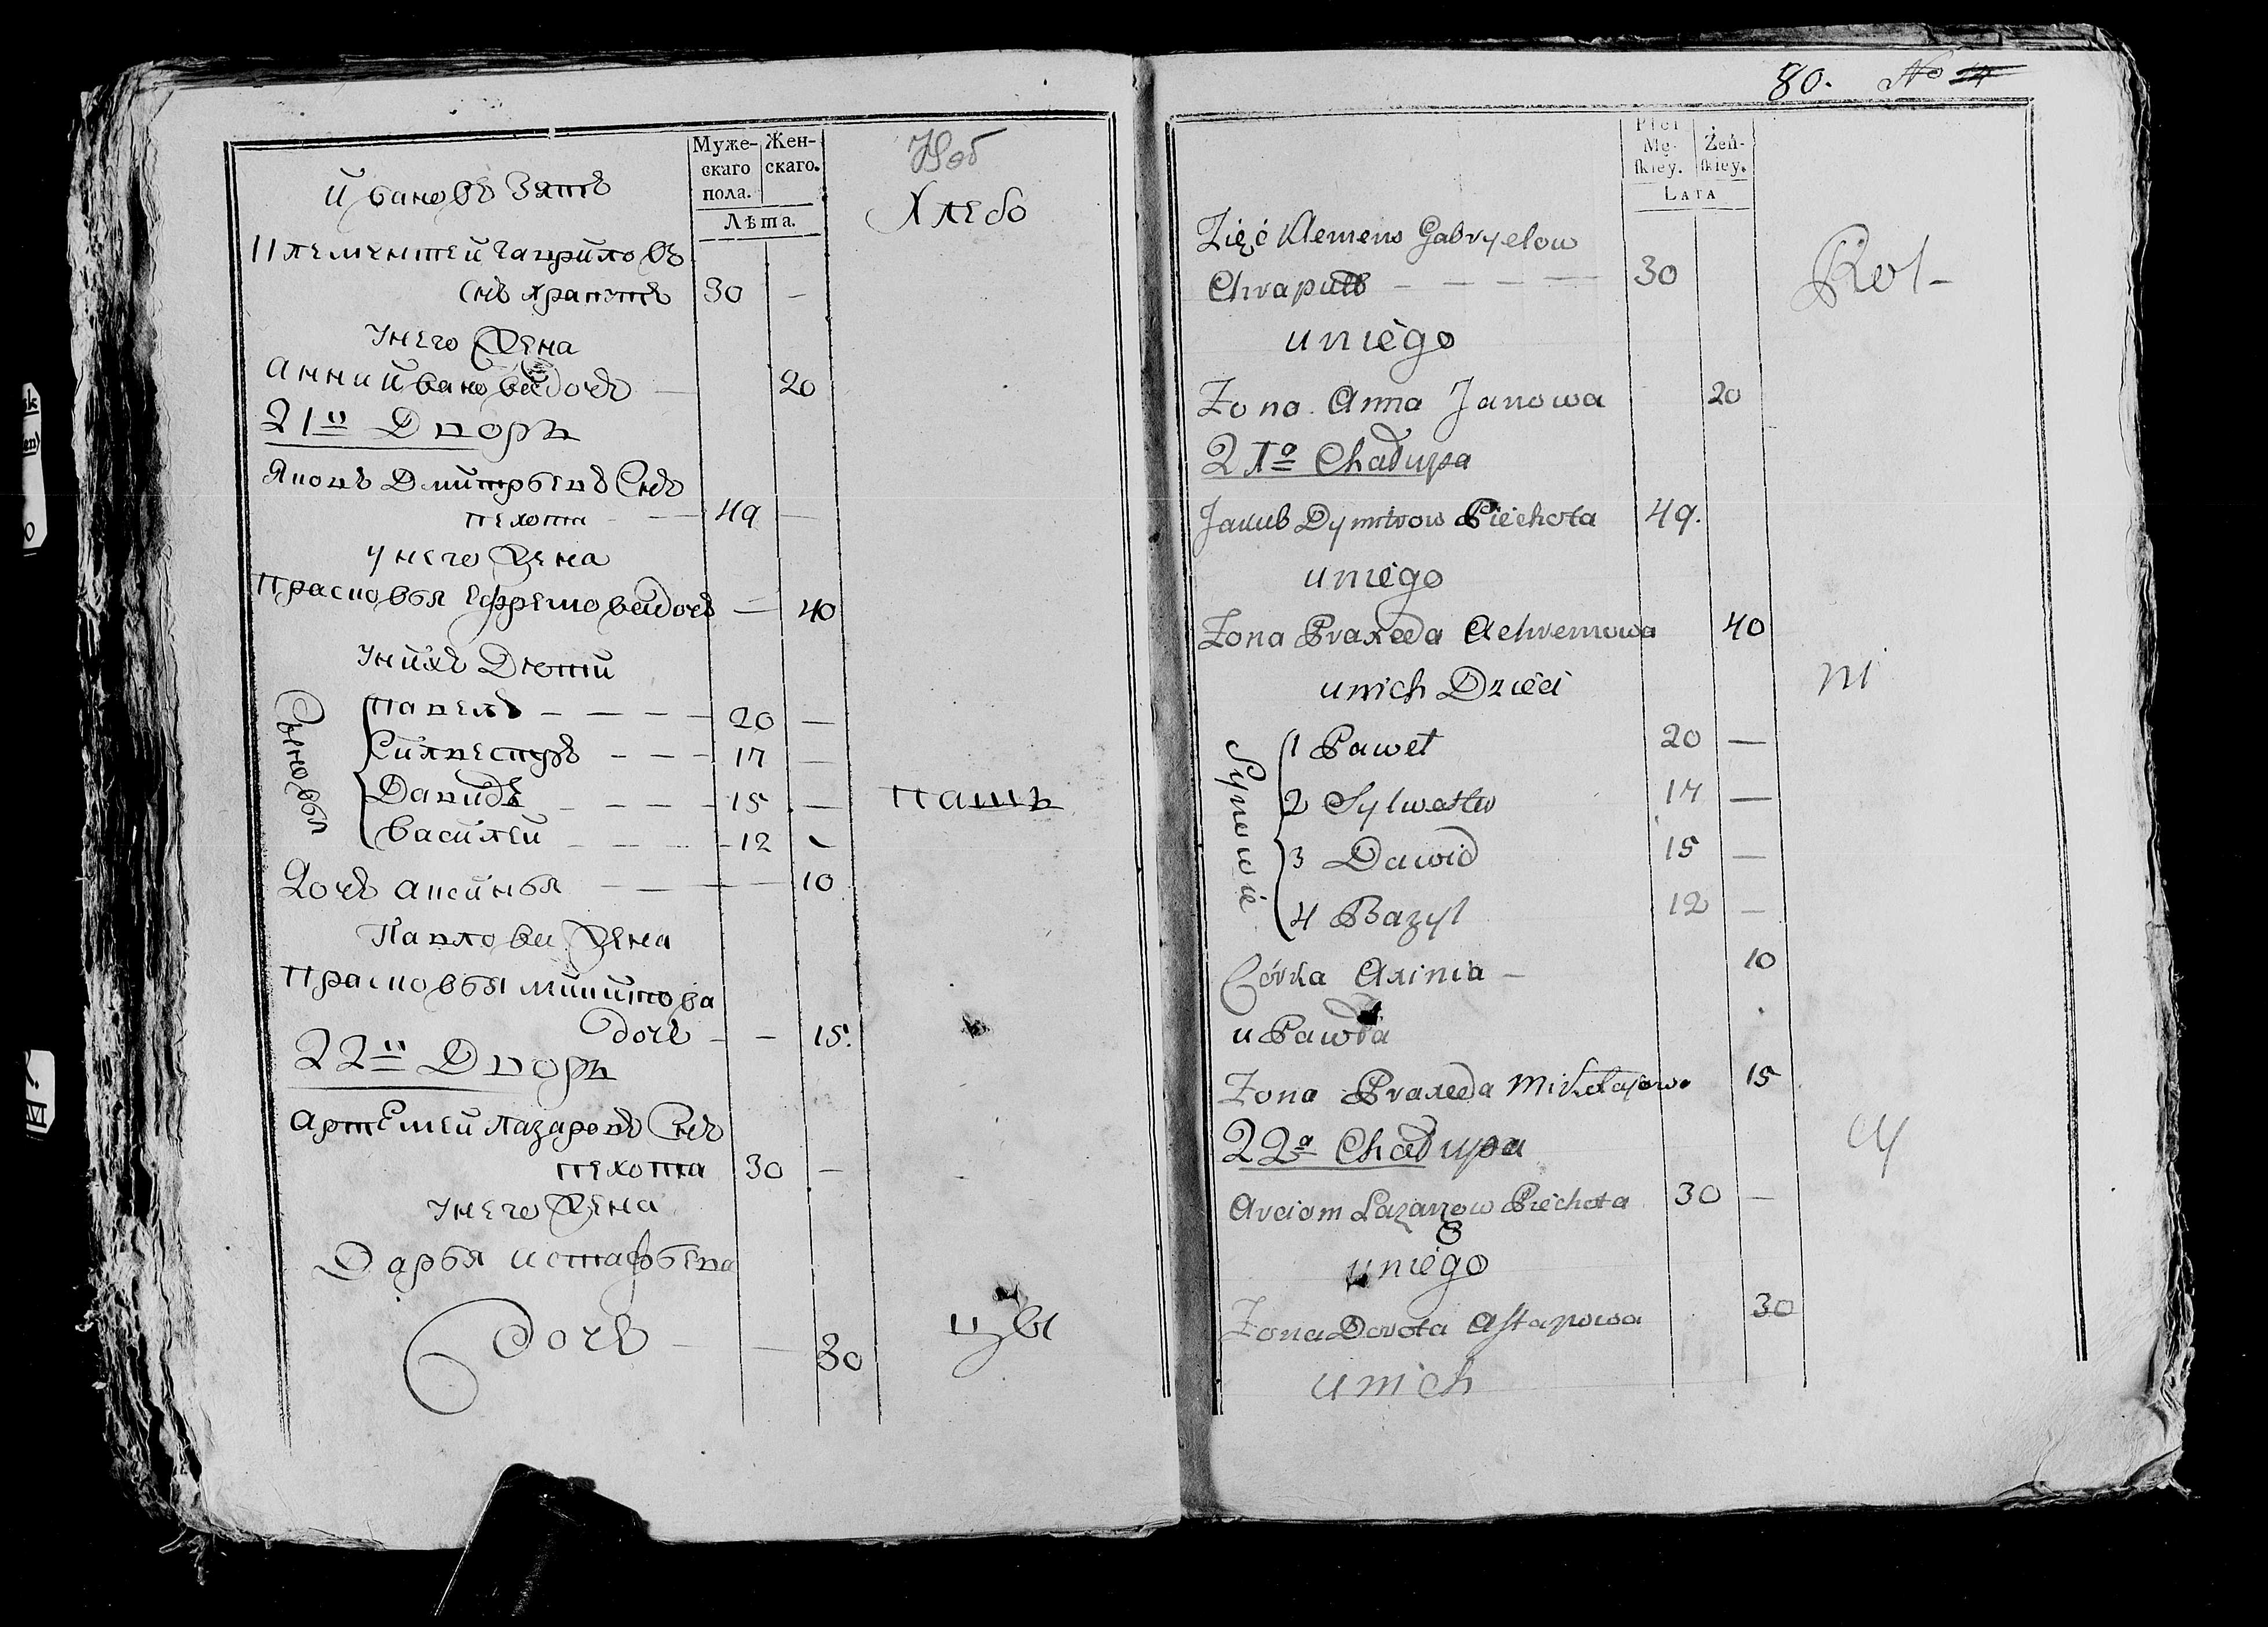 Муже-
скаго
пола.
Жен-
скаго.
Лѣта.
Ивановъ Зять
Клементей Гавриловъ
Снъ Храпутъ 30 —
Унего Жена
Анна Иванова дочь — 20
21й Дворъ
Яковъ Дмитрьевъ Снъ
пехота — 49 —
унего Жена
Прасковья Ефремова дочь — 40
Унихъ Дѣти
Сыновья
Павелъ — — — — 20 —
Силвестръ — — — 17 —
Давидъ — — — — 15 —
Василей — — — 12 -
Дочь Аксинья — — — 10
Павлова Жена
Прасковья Микитова
дочь — — 15.
22й Дворъ
Артемей Лазаровъ Снъ
пехота 30 —
Унего Жена
Дарья Истафьева
дочь — — 30
Хлебо
пашъ
цы
80. No
Płci
Mę-
skiey.
Żeń-
skiey.
LATA
Zięć Klemens Gabryelow
Chraputt — — — — 30
uniego
Zona Anna Janowa 20
21a Chałupa
Jakub Dymitrow Piechota 49.
uniego
Zona Praxeda Achremowa 40
unich Dzieci
Synowie
1 Paweł 20 —
2 Sylwester 17 —
3 Dawid 15 —
4 Bazyl 12 —
Córka Axinia — 10
u Pawła
Zona Praxeda Mikołajowa 15
22a Chałupa
Arciom Łazarzow Piechota 30 —
uniego
Zona Dorota Astapowa 30
unich
Rol-
ni
cy